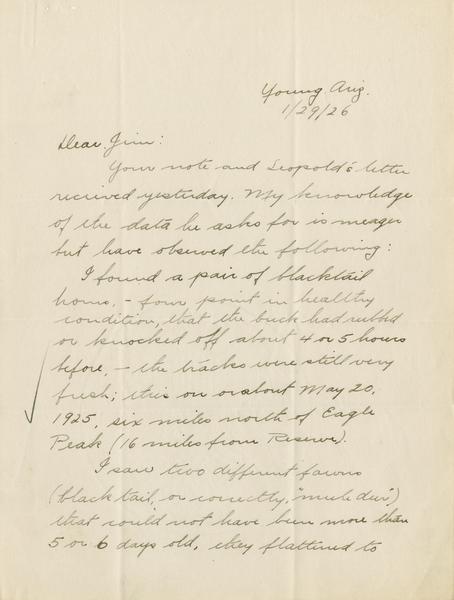 Young, Ariz.
1/29/26
Dear Jim:
Your note and Leopold's letter
recieved yesterday. My knowledge
of the data he asks for is meager
but have observed the following:
I found a pair of blacktail
horns, - four point in healthy
condition, that the buck had rubbed
or knocked off about 4 or 5 hours
before, - the tracks were still very
fresh; this on or about May 20,
1925, six miles north of Eagle
Peak (16 miles from Reserve).
I saw two different fawns
(blacktail, or correctly, "mule deer")
that could not have been more than
5 or 6 days old, they flattened to